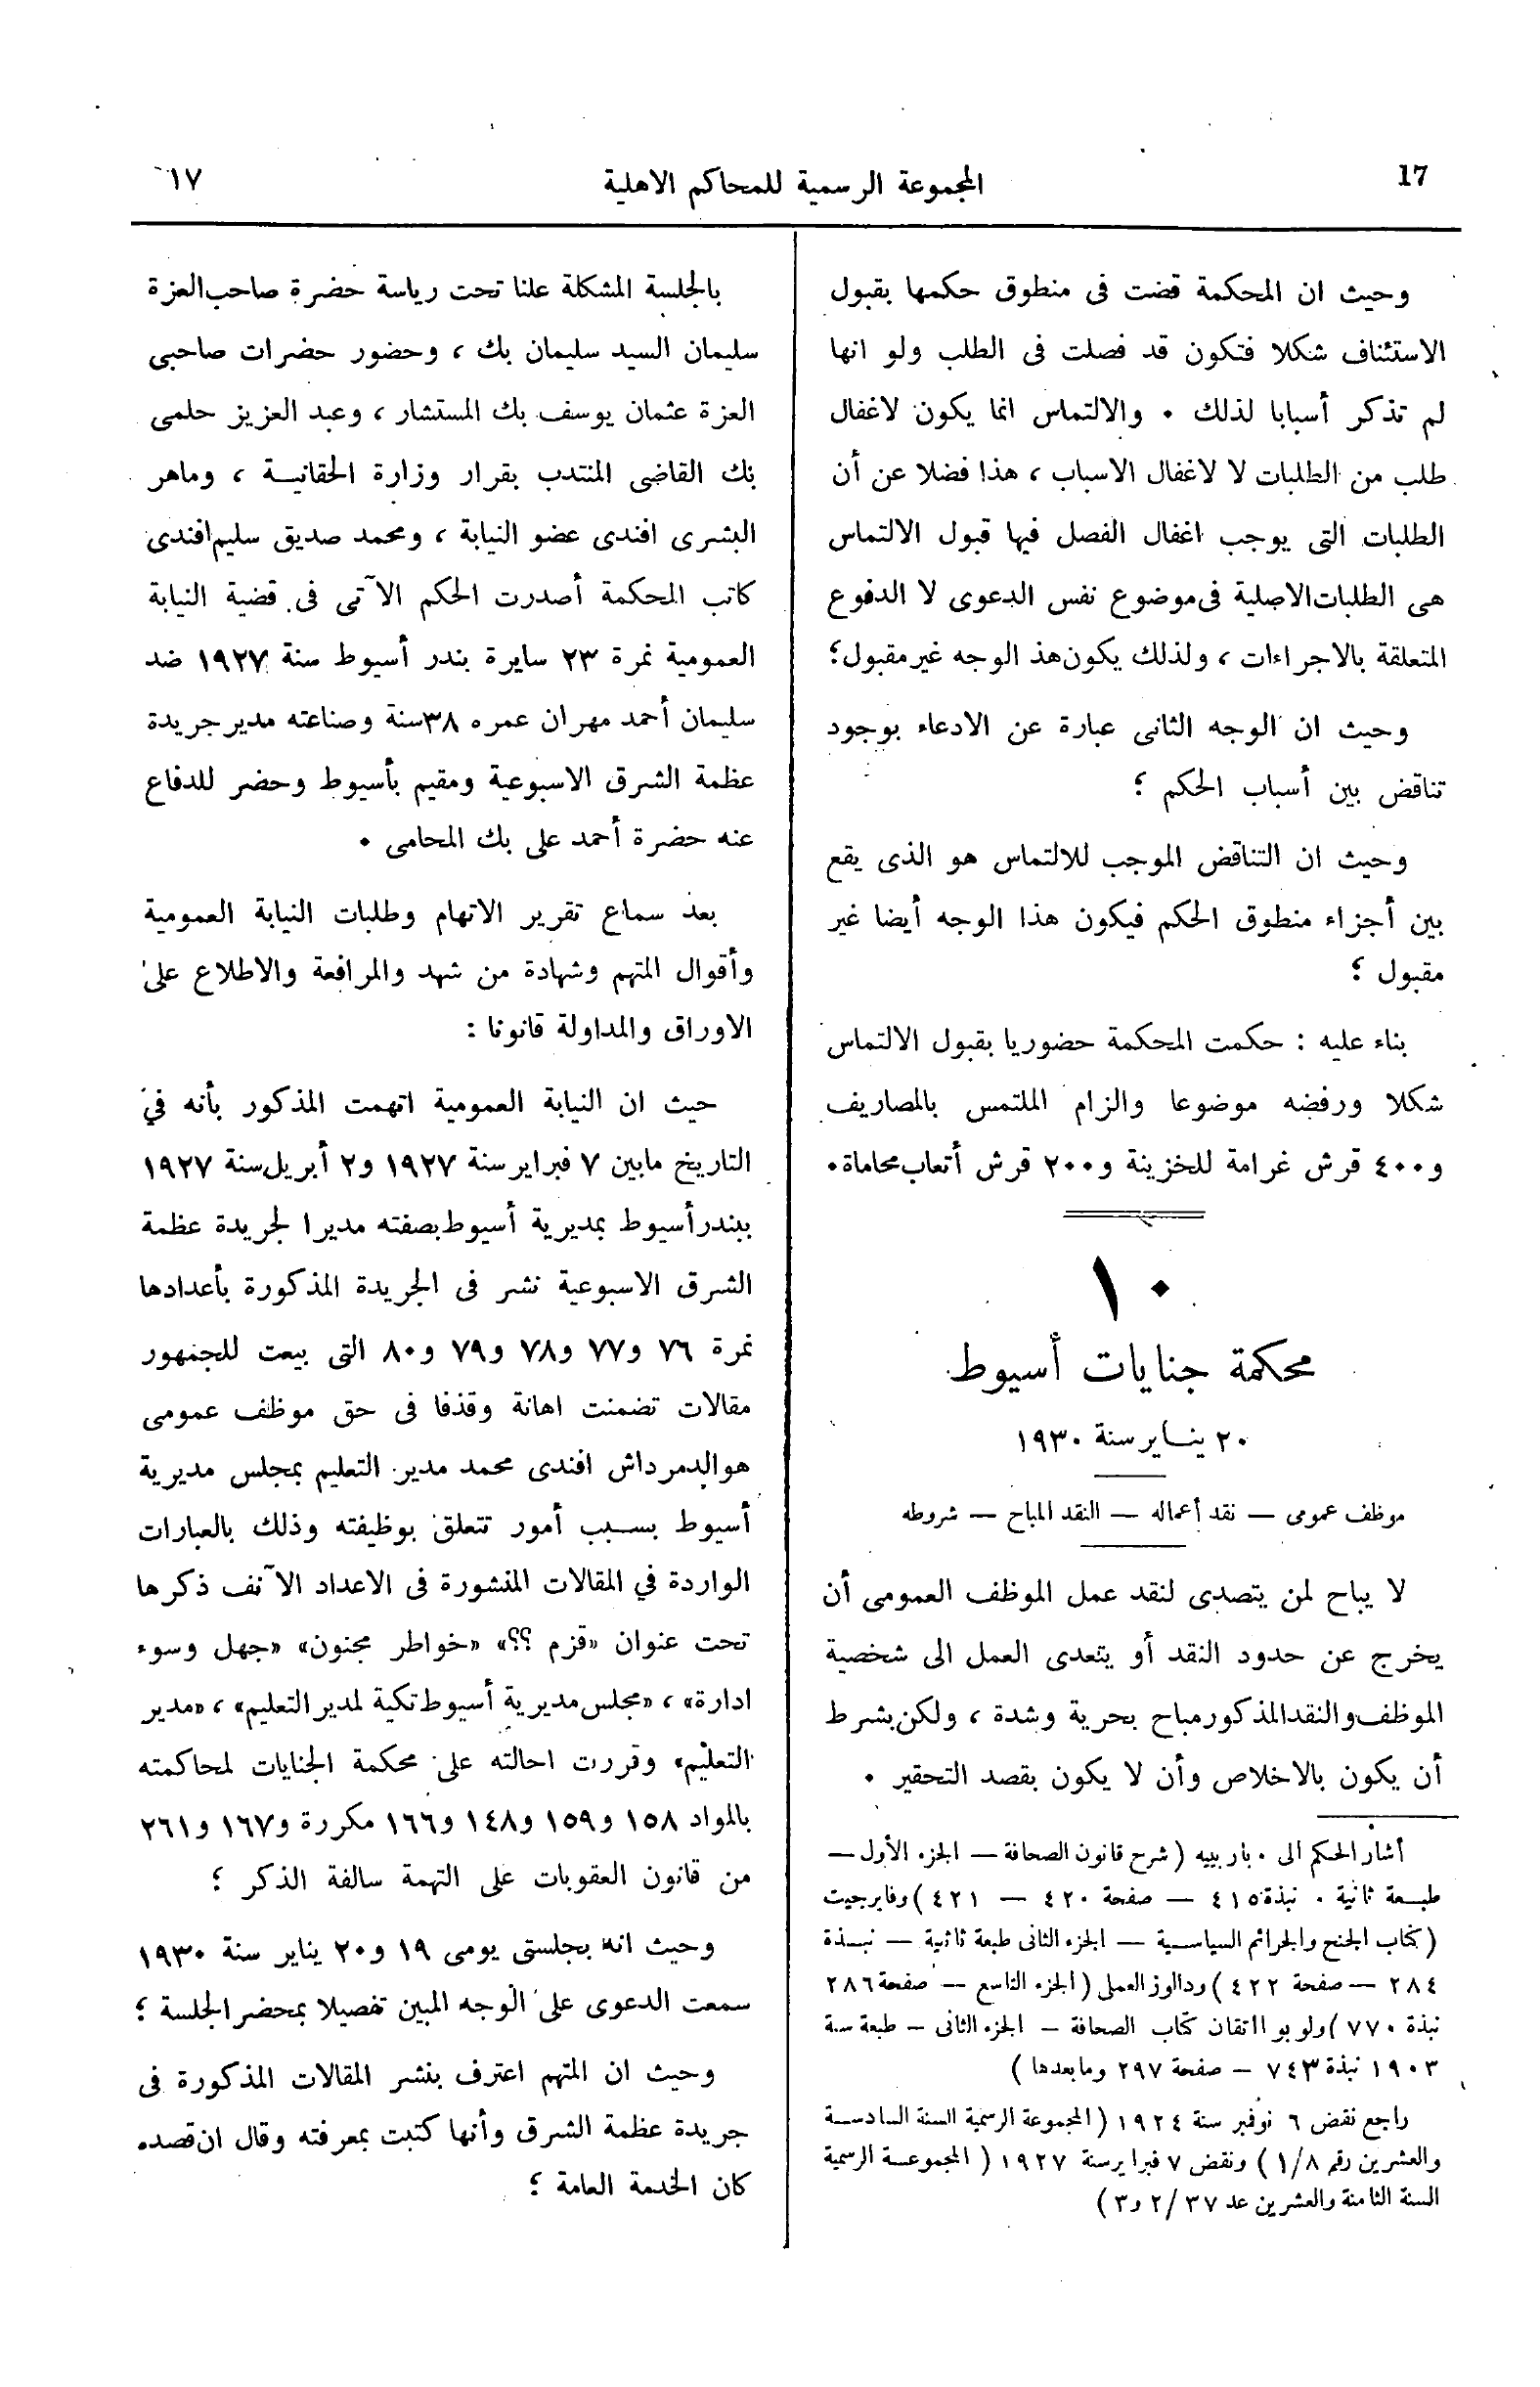 17
المجموعة الرسمية للمحاكم الاهلية
١٧
وحيث ان المحكمة قضت فى منطوق حكمها بقبول
الاستئناف شكلا فتكون قد فصلت فى الطلب ولو انها
لم تذكر أسبابا لذلك . والالتماس انما يكون لاغفال
طلب من الطلبات لا لاغفال الاسباب ، هذا فضلا عن أن
الطلبات التى يوجب اغفال الفصل فيها قبول الالتماس
هى الطلبات الاصلية فى موضوع نفس الدعوى لا الدفوع
المتعلقة بالاجراءات ، ولذلك يكون هذ الوجه غير مقبول ؛
وحيث ان الوجه الثانى عبارة عن الادعاء بوجود
تناقض بين أسباب الحكم ؛
وحيث ان التناقض الموجب للالتماس هو الذى يقع
بين أجزاء منطوق الحكم فيكون هذا الوجه أيضا غير
مقبول ؛
بناء عليه : حكمت المحكمة حضوريا بقبول الالتماس
شكلا ورفضه موضوعا والزام الملتمس بالمصاريف
و٤٠٠ قرش غرامة للخزينة و٢٠٠ قرش أتعاب محاماة .
١٠
محكمة جنايات أسيوط
٢٠ ينـاير سنة ١٩٣٠
موظف عمومى — نقد أعماله — النقد المباح — شروطه
لا يباح لمن يتصدى لنقد عمل الموظف العمومى أن
يخرج عن حدود النقد أو يتعدى العمل الى شخصية
الموظف والنقد المذكور مباح بحرية وشدة ، ولكن بشرط
أن يكون بالاخلاص وأن لا يكون بقصد التحقير .
أشار الحكم الى . باربييه ( شرح قانون الصحافة — الجزء الأول —
طبعة ثانية . نبذة ٤١٥ — صفحة ٤٢٠ — ٤٢١ ) وفابرجيت
( كتاب الجنح والجرائم السياسية — الجزء الثانى طبعة ثانية — نبـذة
٢٨٤ — صفحة ٤٢٢ ) ودالوز العملى ( الجزء التاسع — صفحة ٢٨٦
نبذة ٧٧٠ ) ولو بو اتقان كتاب الصحافة — الجزء الثانى — طبعة سنة
١٩٠٣ نبذة ٧٤٣ — صفحة ٢٩٧ وما بعدها )
راجع نقض ٦ نوفمبر سنة ١٩٢٤ ( المجموعة الرسمية السنة السادسـة
والعشرين رقم ١/٨ ) ونقض ٧ فبراير سنة ١٩٢٧ ( المجموعـة الرسمية
السنة الثامنة والعشرين عد ٣٧ /٢ و٣ )
بالجلسة المشكلة علنا تحت رياسة حضرة صاحب العزة
سليمان السيد سليمان بك ، وحضور حضرات صاحبى
العزة عثمان يوسف بك المستشار ، وعبد العزيز حلمى
بك القاضى المنتدب بقرار وزارة الحقانيـة ، وماهر
البشرى افندى عضو النيابة ، ومحمد صديق سليم افندى
كاتب المحكمة أصدرت الحكم الآتى فى قضية النيابة
العمومية نمرة ٢٣ سايرة بندر أسيوط سنة ١٩٢٧ ضد
سليمان أحمد مهران عمره ٣٨ سنة وصناعته مدير جريدة
عظمة الشرق الاسبوعية ومقيم بأسيوط وحضر للدفاع
عنه حضرة أحمد على بك المحامى .
بعد سماع تقرير الاتهام وطلبات النيابة العمومية
وأقوال المتهم وشهادة من شهد والمرافعة والاطلاع على
الاوراق والمداولة قانونا :
حيث ان النيابة العمومية اتهمت المذكور بأنه في
التاريخ مابين ٧ فبراير سنة ١٩٢٧ و٢ أبريل سنة ١٩٢٧
ببندر أسيوط بمديرية أسيوط بصفته مديرا لجريدة عظمة
الشرق الاسبوعية نشر فى الجريدة المذكورة بأعدادها
نمرة ٧٦ و٧٧ و٧٨ و٧٩ و٨٠ التى بيعت للجمهور
مقالات تضمنت اهانة وقذفا فى حق موظف عمومى
هو الدمرداش افندى محمد مدير التعليم بمجلس مديرية
أسيوط بسبب أمور تتعلق بوظيفته وذلك بالعبارات
الواردة في المقالات المنشورة فى الاعداد الآنف ذكرها
تحت عنوان «قزم ؟؟» «خواطر مجنون» «جهل وسوء
ادارة» ، «مجلس مديرية أسيوط تكية لمدير التعليم» ، «مدير
التعليم» وقررت احالته على محكمة الجنايات لمحاكمته
بالمواد ١٥٨ و١٥٩ و١٤٨ و١٦٦ مكررة و١٦٧ و٢٦١
من قانون العقوبات على التهمة سالفة الذكر ؛
وحيث انه بجلستى يومى ١٩ و٢٠ يناير سنة ١٩٣٠
سمعت الدعوى على الوجه المبين تفصيلا بمحضر الجلسة ؛
وحيث ان المتهم اعترف بنشر المقالات المذكورة فى
جريدة عظمة الشرق وأنها كتبت بمعرفته وقال ان قصده
كان الخدمة العامة ؛